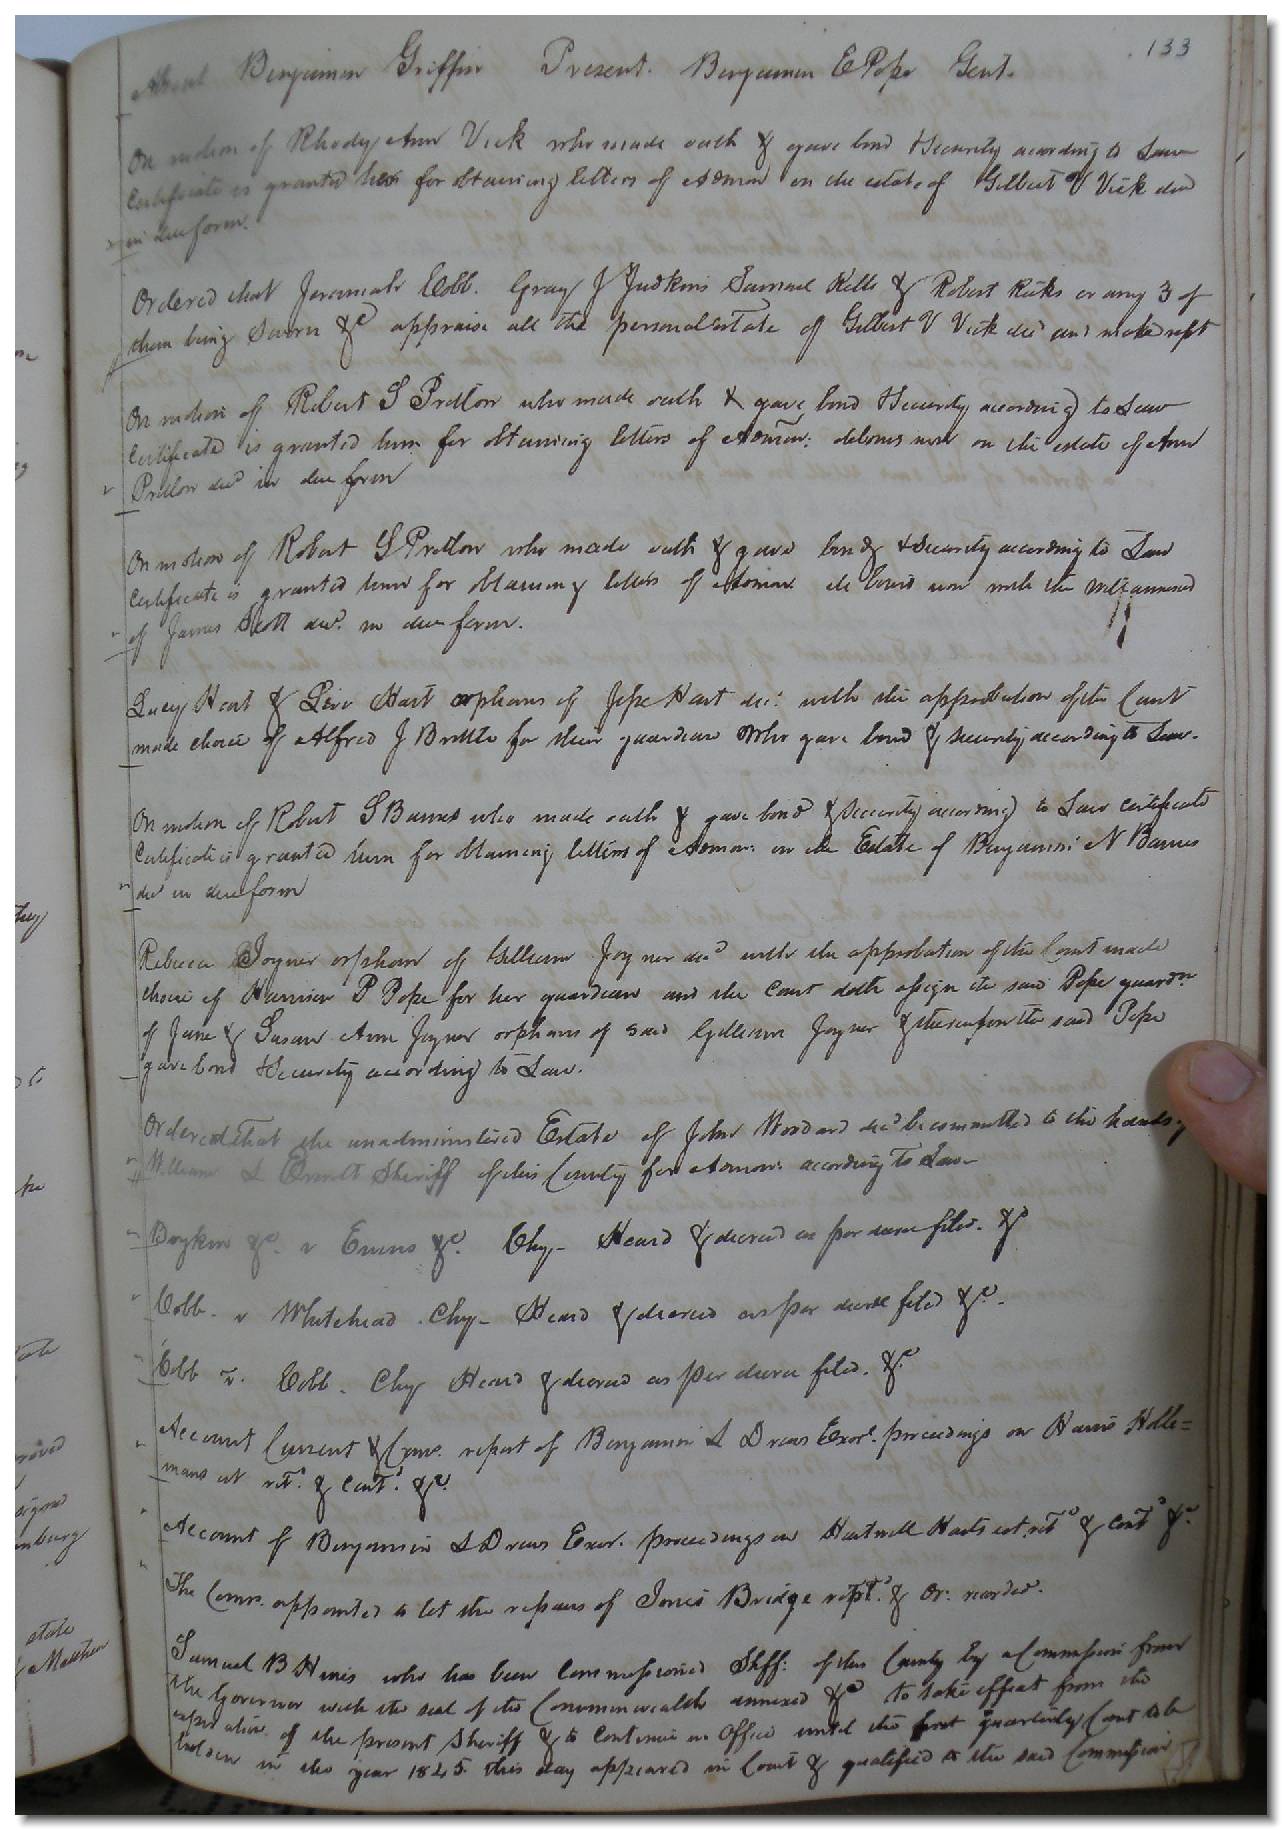 133
Absent Benjamin Griffin Present. Benjamin E Pope Gent.
On motion of Rhody Ann Vick who made oath & gave bond & Security according to Law
Certificate is granted her for obtaining letters of Admon on the estate of Gilbert V Vick decd
in due form.
Ordered that Jeremiah Cobb. Gray J Judkins Samuel Kello & Robert Ricks or any 3 of
them being Sworn &c appraise all the personal Estate of Gilbert V Vick decd and make rept
On motion of Robert S Pretlow who made oath & gave bond & Security according to Law
Certificate is granted him for obtaining letters of Admon: debonis non on the estate of Ann
Pretlow decd in due form
On motion of Robert S Pretlow who made oath & gave bond & Security according to Law
Certificate is granted him for obtaining letters of Admon de bonis non with the will annexed
of James Scott decd. in due form.
Lucy Hart & Levi Hart orphans of Jesse Hart decd. with the approbation of the Court
made choice of Alfred J Brittle for their guardian who gave bond & Security according to Law.
On motion of Robert S Barnes who made oath & gave bond & Security according to Law certificate
Certificate is granted him for obtaining letters of Admon: on the Estate of Benjamin N Barnes
decd in due form
Rebecca Joyner orphan of Gilliam Joyner decd with the approbation of the Court made
choice of Harrison P Pope for her guardian and the Court doth assign the said Pope guardn
of Jane & Susan Ann Joyner orphans of said Gilliam Joyner & thereupon the said Pope
gave bond & Security according to Law.
Ordered that the unadministered Estate of John Woodard decd be committed to the hands of
William L Everitt Sheriff of this County for Admon: according to Law
Boykin &c. v Evans &c. Chy- Heard & decreed as per decree filed. &c
Cobb. v Whitehead. Chy- Heard & decreed as per decree filed &c.
Cobb v. Cobb. Chy Heard & decreed as per decree filed. &c.
Account Current & Coms. report of Benjamin L Drews Exor. proceedings on Harris Holle=
mans est retd. & contd. &c.
Account of Benjamin L Drews Exor. proceedings on Hartwell Harts est. retd & contd &c.
The Coms. appointed to let the repairs of Jones Bridge rept. & Or: recorded.
Samuel B Hines who has been Commissioned Shff: of this County by a Commission from
the Governor with the seal of the Commonwealth annexed &c to take effect from the
expiration of the present Sheriff & to Continue in Office until the first quarterly Court to be
holden in the year 1845 this day appeared in Court & qualified to the said Commission